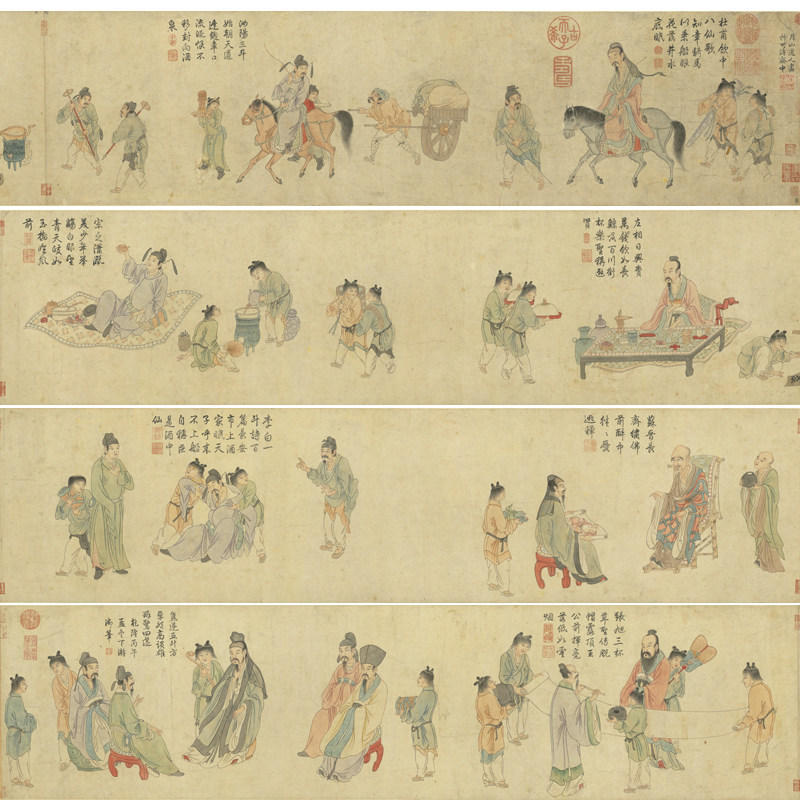 杜甫飲中
八仙歌
知章騎馬
似乘船眼
花落井水
底眠
古希天子
汝陽三斗
始朝天道
逢麴車口
流涎恨不
移封向酒
泉
左相日興費
萬錢飲如長
鯨吸百川銜
杯樂聖稱避
賢
宗之瀟灑
美少年舉
觴白眼望
青天皎如
玉樹臨風
前
蘇晉長
齋繡佛
前醉中
往〻愛
逃禪
李白一
斗詩百
篇長安
市上酒
家眠天
子呼來
不上船
自稱臣
是酒中
仙
張旭三杯
草聖傳脫
帽露頂王
公前揮毫
落紙如雲
烟
焦遂五斗方
卓然高談雄
辯驚四筵
乾隆丙午
孟冬下澣
御筆